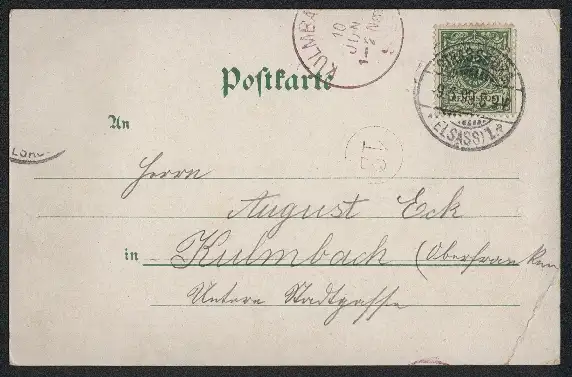 KULMBA
10
JUN
1-2 Nm
Postkarte
(ELSASS) 1.*
An
Herrn
August Eck
in Kulmbach (Oberfranken
Untere Stadtgasse